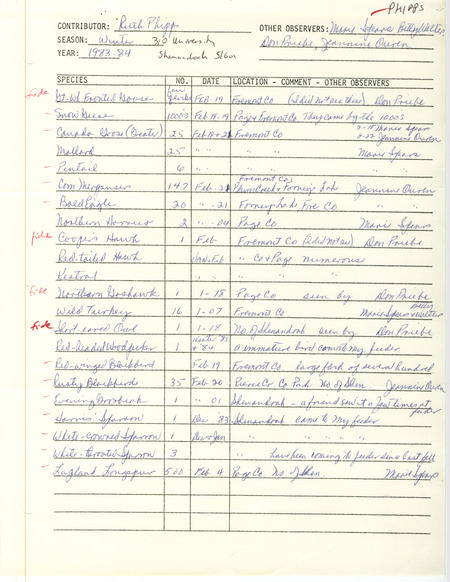 PHIPPS
CONTRIBUTOR: Ruth Phipps OTHER OBSERVERS: Marie Spears Betty Walters
SEASON: Winter 310 University Don Priebe, Jeannine Owen
YEAR: 1983-84 Shenandoah 51601
SPECIES NO. DATE LOCATION - COMMENT - OTHER OBSERVERS
fide Gt-Wh Fronted Goose few FEB 19 Fremont Co (I did not see these) Don Priebe
Snow Geese 1000's Feb 18-19 Page & Fremont Co. They came by the 1000s
Canada Goose (Greater) 25 Feb 18 & 22 Fremont Co 2-18 Marie Spears
2-22 Jeannine Owen
Mallard 25 " " " " Marie Spears
Pintail 6 " " " " " "
Com Merganser 147 Feb. Fremont Co. Plum Creek & Forneys Lake Jeannine Owen
Bald Eagle 20 " -21 Forneys Lake Fre Co " "
Northern Harrier 2 " -04 Page Co Marie Spears
fide Cooper's Hawk 1 Feb Fremont Co (I did not see) Don Priebe
Red-tailed Hawk Jan & Feb " Co & Page numerous
Kestrel " " " "
fide Northern Goshawk 1 1-18 Page Co seen by Don Priebe
Wild Turkey 16 1-07 Fremont Co Marie Spears & Betty Walters
fide Short-eared Owl 1 1-18 No of Shenandoah seen by Don Priebe
Red-headed Woodpecker 1 & '84 a immature bird came to my feeder
Red-winged Blackbird Feb 19 Fremont Co large flock of several hundred
Rusty Blackbirds 35 Feb 20 Pierce Cr Co Park No. of Shen. Jeannine Owen
Evening Grosbeak 1 " 01 Shenandoah - a friend saw it a few times at feeder
Harris' Sparrow 1 Dec '83 Shenandoah came to my feeder
White-crowned Sparrow 1 Dec & Jan " " " "
White-throated Sparrow 3 " have been coming to feeder since last fall
Lapland Longspur 500 Feb 4 Page Co No of Shen Marie Spears